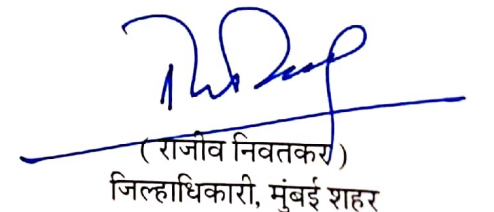 ( राजीव निवतकर )
जिल्हाधिकारी, मुंबई शहर